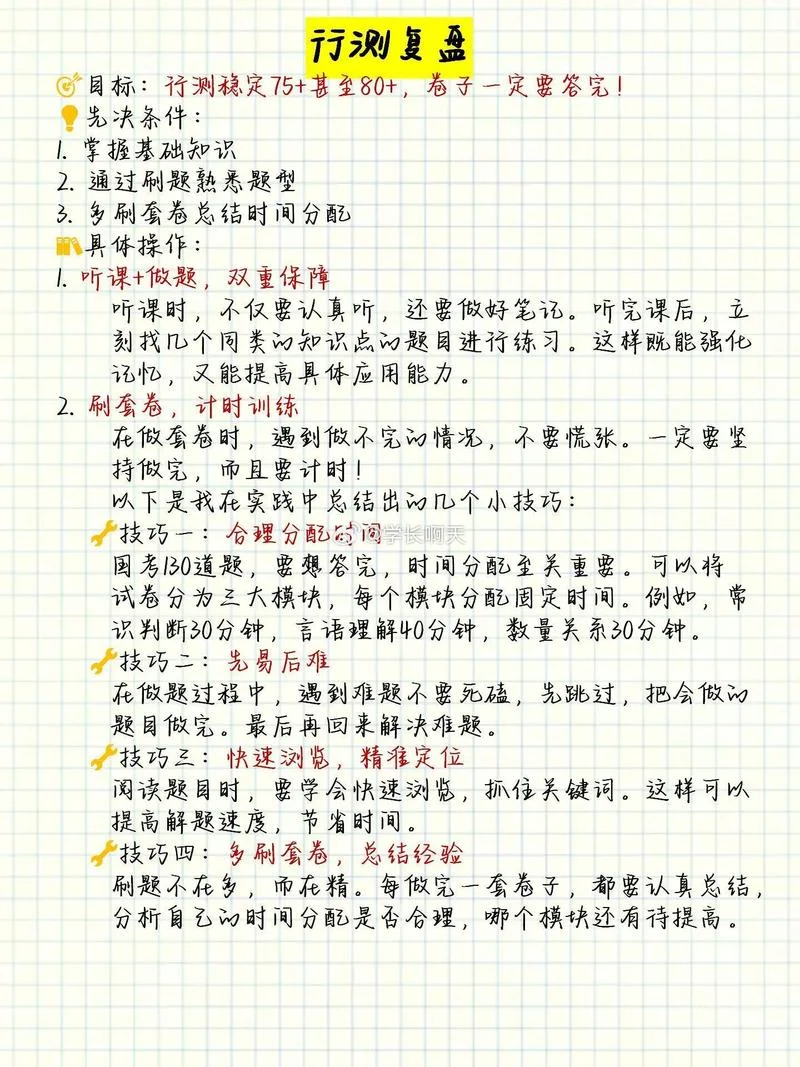 行测复盘
目标：行测稳定75+甚至80+，卷子一定要答完！
先决条件：
1. 掌握基础知识
2. 通过刷题熟悉题型
3. 多刷套卷总结时间分配
具体操作：
1. 听课+做题，双重保障
听课时，不仅要认真听，还要做好笔记。听完课后，立
刻找几个同类的知识点的题目进行练习。这样既能强化
记忆，又能提高具体应用能力。
2. 刷套卷，计时训练
在做套卷时，遇到做不完的情况，不要慌张。一定要坚
持做完，而且要计时！
以下是我在实践中总结出的几个小技巧：
技巧一：合理分配时间
@学长啊天
国考130道题，要想答完，时间分配至关重要。可以将
试卷分为三大模块，每个模块分配固定时间。例如，常
识判断30分钟，言语理解40分钟，数量关系30分钟。
技巧二：先易后难
在做题过程中，遇到难题不要死磕，先跳过，把会做的
题目做完。最后再回来解决难题。
技巧三：快速浏览，精准定位
阅读题目时，要学会快速浏览，抓住关键词。这样可以
提高解题速度，节省时间。
技巧四：多刷套卷，总结经验
刷题不在多，而在精。每做完一套卷子，都要认真总结，
分析自己的时间分配是否合理，哪个模块还有待提高。